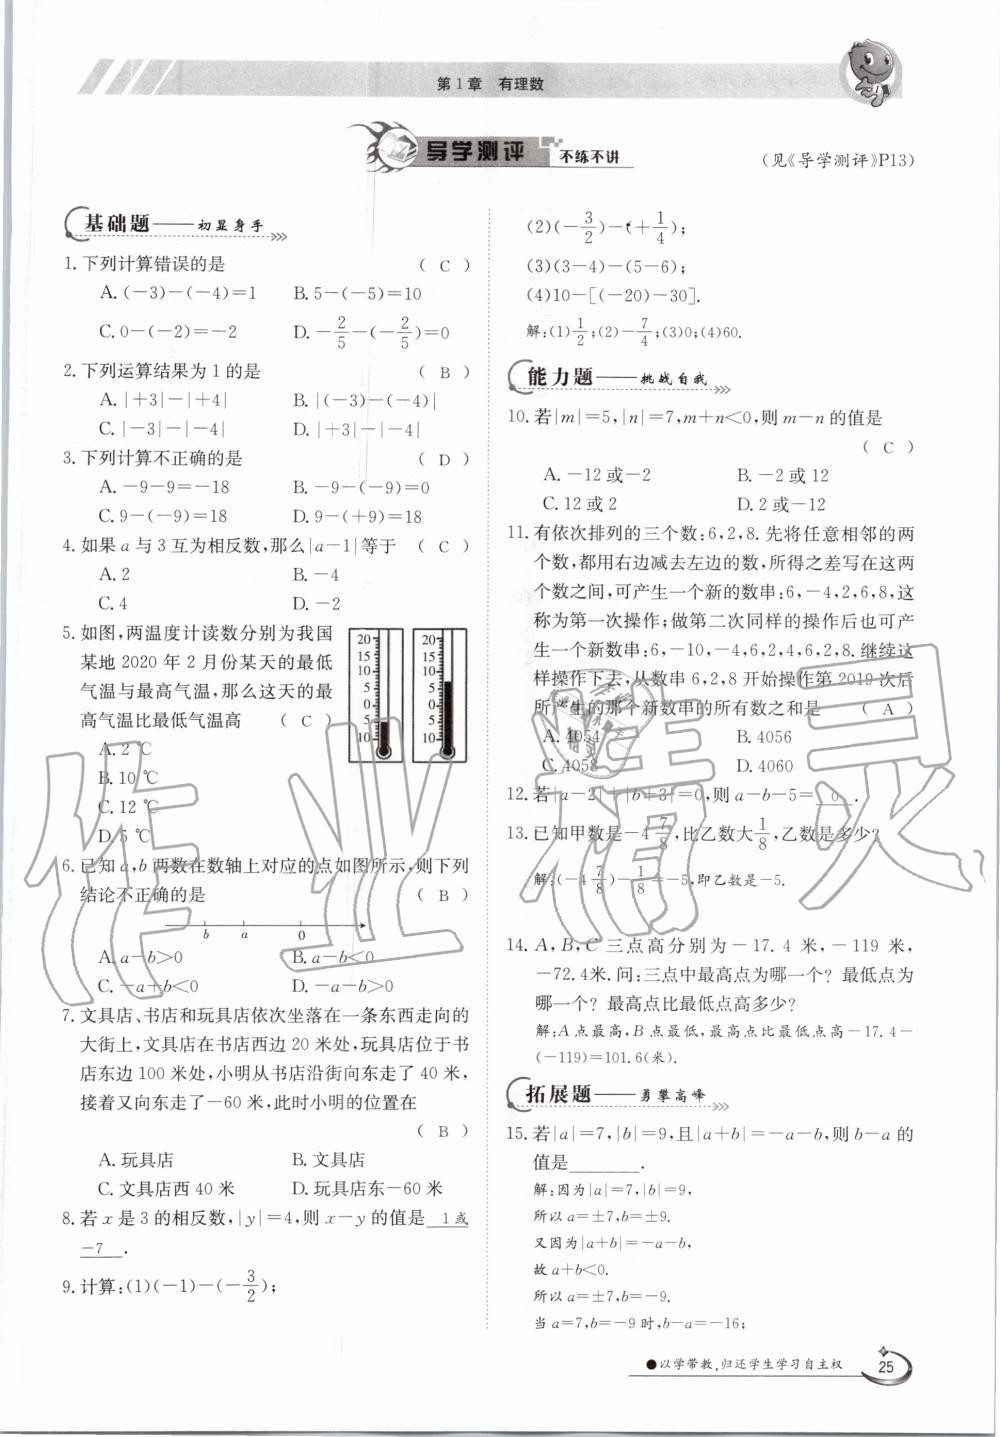 第1章 有理数
导学测评 不练不讲
(见《导学测评》P13)
基础题——初显身手
1.下列计算错误的是 ( C )
A.(-3)-(-4)=1 B.5-(-5)=10
C.0-(-2)=-2 D.-2/5-(-2/5)=0
2.下列运算结果为1的是 ( B )
A.|+3|-|+4| B.|(-3)-(-4)|
C.|-3|-|-4| D.|+3|-|-4|
3.下列计算不正确的是 ( D )
A.-9-9=-18 B.-9-(-9)=0
C.9-(-9)=18 D.9-(+9)=18
4.如果a与3互为相反数,那么|a-1|等于 ( C )
A.2 B.-4
C.4 D.-2
5.如图,两温度计读数分别为我国
某地2020年2月份某天的最低
气温与最高气温,那么这天的最
高气温比最低气温高 ( C )
20 15 10 5 0 5 10
20 15 10 5 0 5 10
A.2 ℃
B.10 ℃
C.12 ℃
D.5 ℃
6.已知a,b两数在数轴上对应的点如图所示,则下列
结论不正确的是 ( B )
b a 0
A.a-b>0 B.a-b<0
C.-a+b<0 D.-a-b>0
7.文具店、书店和玩具店依次坐落在一条东西走向的
大街上,文具店在书店西边20米处,玩具店位于书
店东边100米处,小明从书店沿街向东走了40米,
接着又向东走了-60米,此时小明的位置在
( B )
A.玩具店 B.文具店
C.文具店西40米 D.玩具店东-60米
8.若x是3的相反数,|y|=4,则x-y的值是 1或
-7 .
9.计算:(1)(-1)-(-3/2);
(2)(-3/2)-(+1/4);
(3)(3-4)-(5-6);
(4)10-[(-20)-30].
解:(1)1/2;(2)-7/4;(3)0;(4)60.
能力题——挑战自我
10.若|m|=5,|n|=7,m+n<0,则m-n的值是
( C )
A.-12或-2 B.-2或12
C.12或2 D.2或-12
11.有依次排列的三个数:6,2,8.先将任意相邻的两
个数,都用右边减去左边的数,所得之差写在这两
个数之间,可产生一个新的数串:6,-4,2,6,8,这
称为第一次操作;做第二次同样的操作后也可产
生一个新数串:6,-10,-4,6,2,4,6,2,8.继续这
样操作下去,从数串6,2,8开始操作第2019次后
所产生的那个新数串的所有数之和是 ( A )
A.4054 B.4056
C.4058 D.4060
12.若|a-2|+|b+3|=0,则a-b-5= 0 .
13.已知甲数是-4 7/8,比乙数大1/8,乙数是多少?
解:(-4 7/8)-1/8=-5,即乙数是-5.
14.A,B,C三点高分别为-17.4米,-119米,
-72.4米.问:三点中最高点为哪一个?最低点为
哪一个?最高点比最低点高多少?
解:A点最高,B点最低,最高点比最低点高-17.4-
(-119)=101.6(米).
拓展题——勇攀高峰
15.若|a|=7,|b|=9,且|a+b|=-a-b,则b-a的
值是______.
解:因为|a|=7,|b|=9,
所以a=±7,b=±9.
又因为|a+b|=-a-b,
故a+b<0.
所以a=±7,b=-9.
当a=7,b=-9时,b-a=-16;
●以学带教,归还学生学习自主权 25
作业精灵